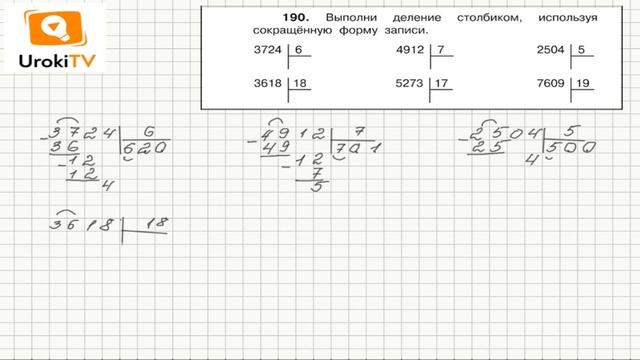 UrokiTV
190. Выполни деление столбиком, используя
сокращённую форму записи.
3724 6 4912 7 2504 5
3618 18 5273 17 7609 19
3724 6 4912 7 2504 5
-36 620 -49 701 -25 500
-12 -12 4
12 7
4 5
3618 18